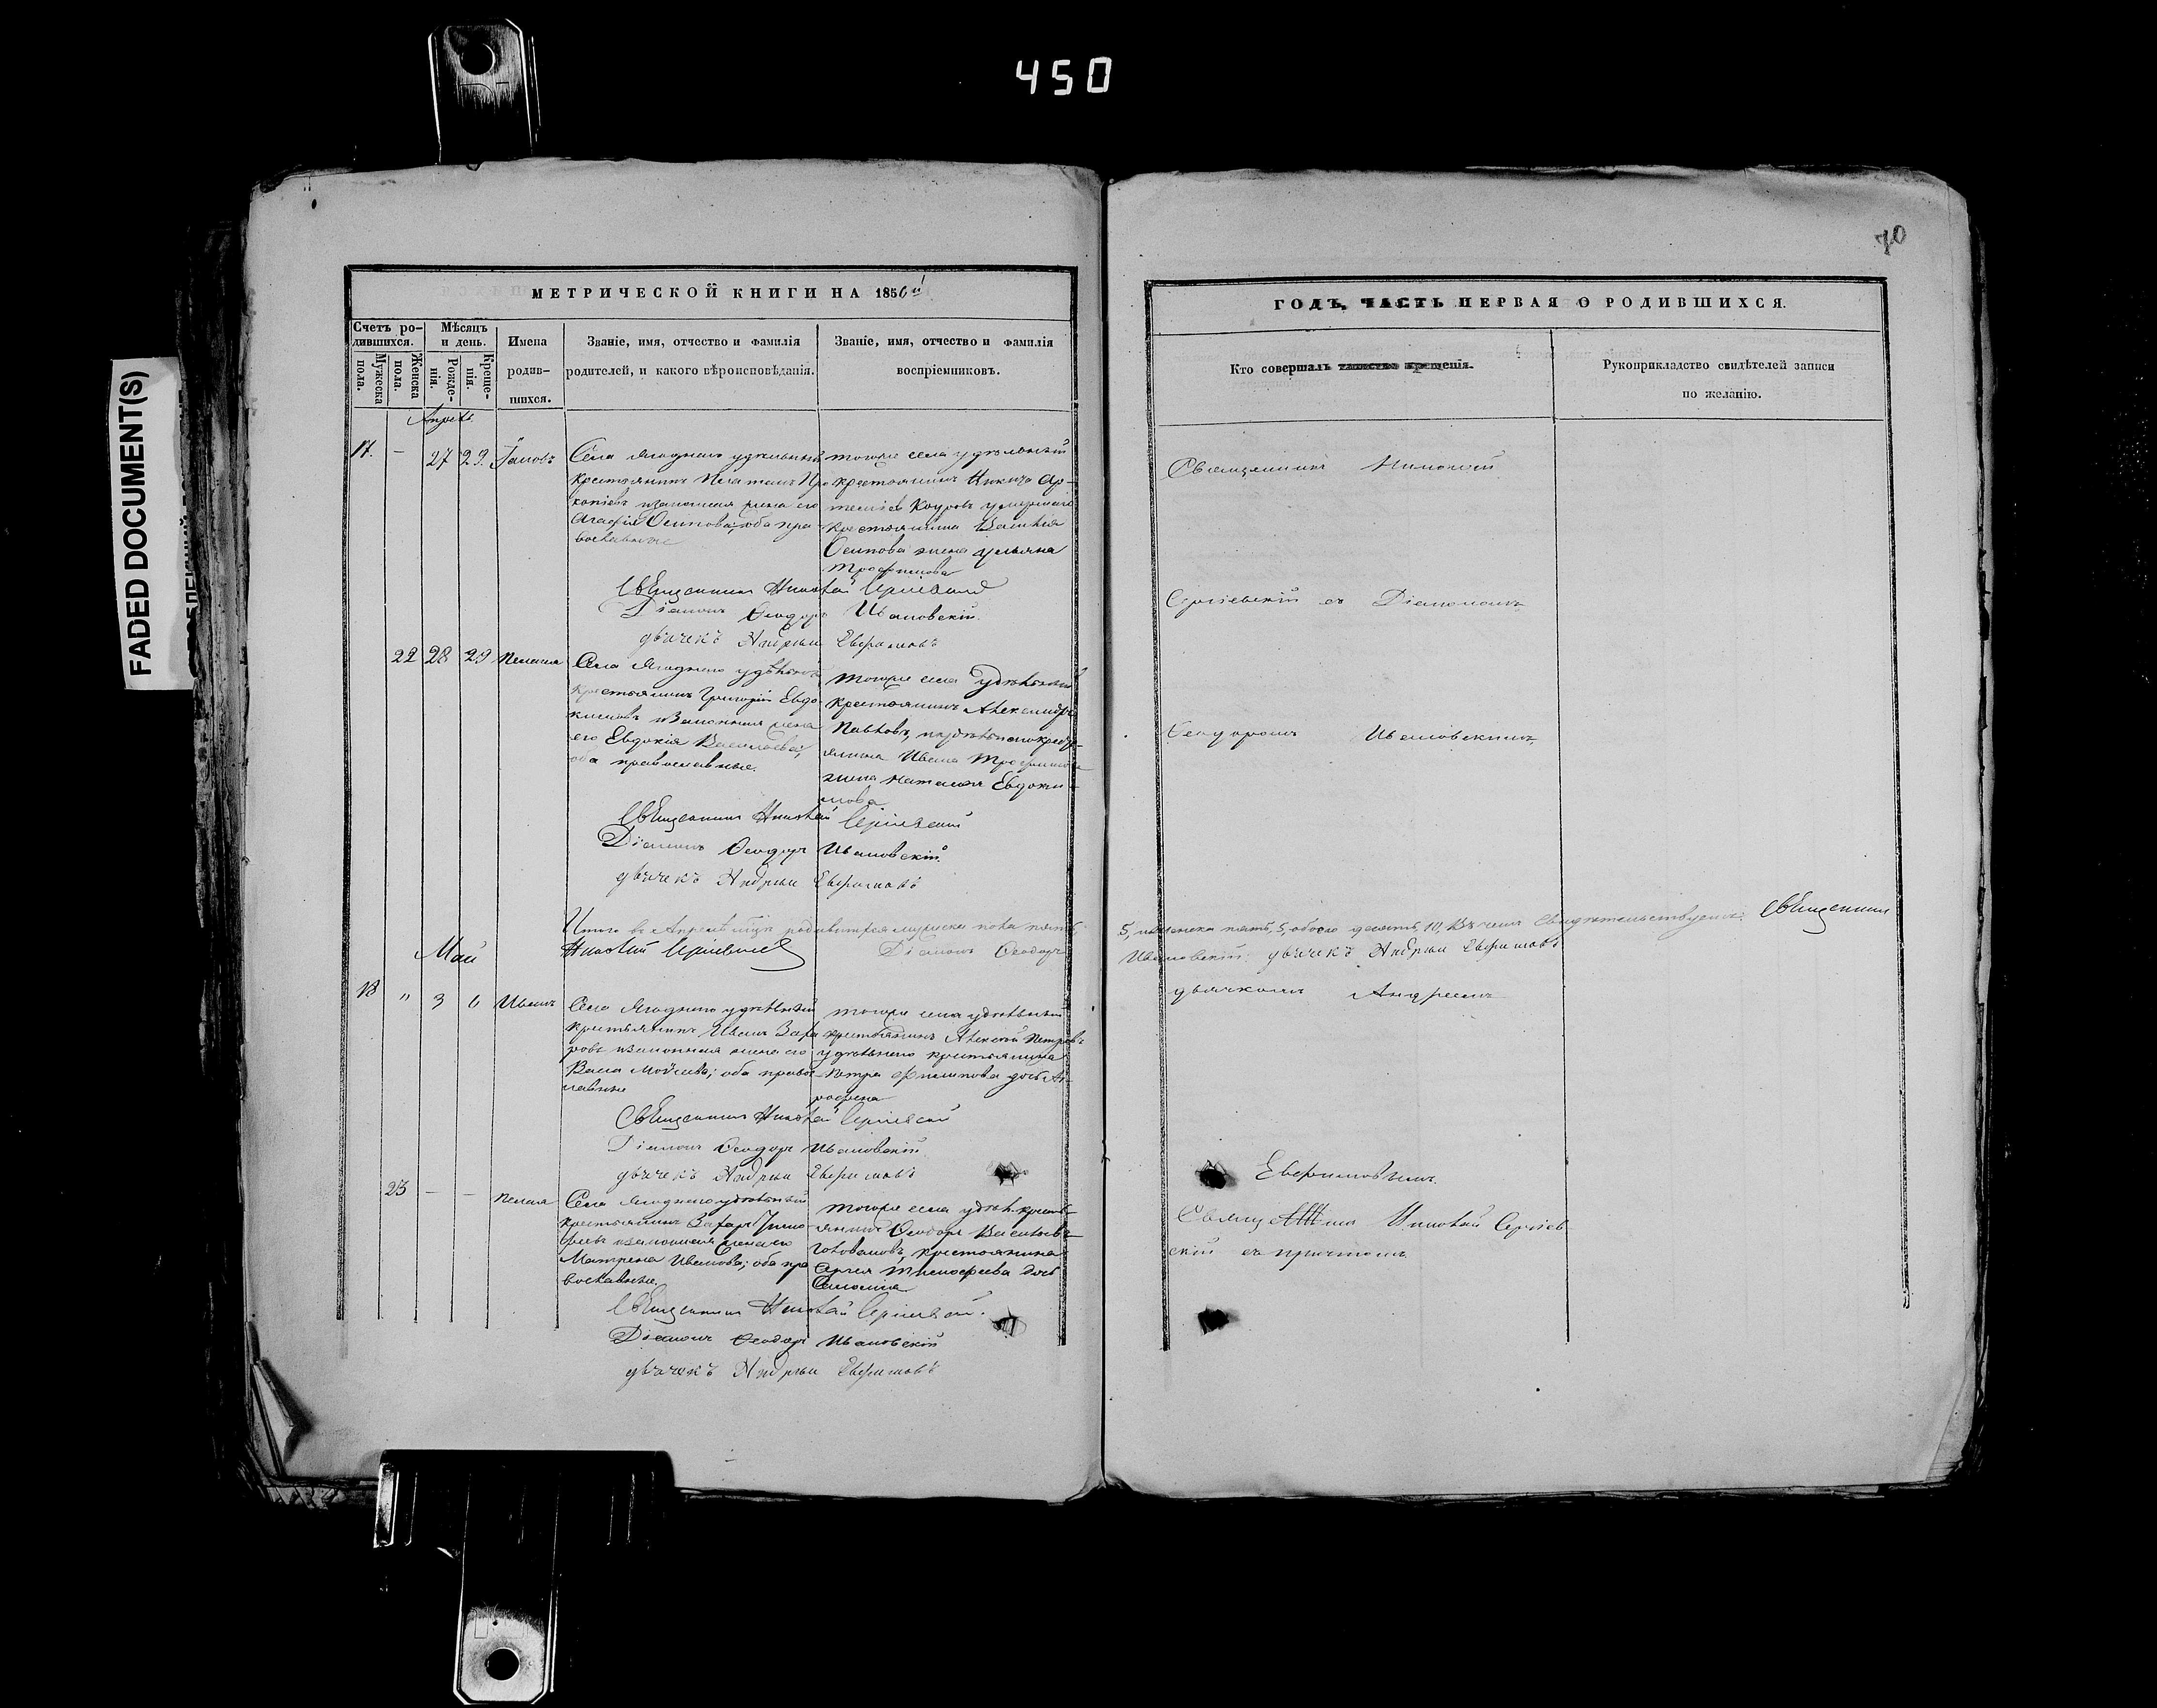 450
FADED DOCUMENT(S)
70
МЕТРИЧЕСКОЙ КНИГИ НА 1856й
Счетъ ро-
дившихся.
Мужеска пола.
Женска пола.
Мѣсяцъ
и день.
Рожде-
нія.
Креще-
нія.
Имена
родив-
шихся.
Званіе, имя, отчество и фамилія
родителей, и какого вѣроисповѣданія.
Званіе, имя, отчество и фамилія
воспріемниковъ.
Апрель
17. — 27 29. Іаковъ
Села Ягоднаго удельный
крестьянинъ Платонъ Про
копіевъ изаконная жена его
Агафія Осипова; оба пра
вославные
тогоже села удѣльный
крестьянинъ Никита Ар-
темьевъ
крестьянина
Осипова жена Ульяна
Трофимова
Священникъ Николай Сергіевскій
Діаконъ Ѳеодоръ Ивановскій.
дьячекъ Андрей Евфимовъ
22 28 29 Пелагея
Села Ягоднаго удѣльный
крестьянинъ Григорій Евдо
кимовъ изаконная жена
его Евдокія Васильева;
оба православные.
тогоже села удѣльный
крестьянинъ Александръ
Павловъ,
Ивана Трофимова
жена Наталья Евдоки-
мова
Священникъ Николай Сергіевскій
Діаконъ Ѳеодоръ Ивановскій.
дьячекъ Андрей Евфимовъ
Итого въ Апрелѣ родившихся мужеска пола пять
Николай Сергіевскій Діаконъ Ѳеодоръ
Май
18 " 3 6 Иванъ
Села Ягоднаго удѣльный
крестьянинъ Иванъ Заха
ровъ изаконная жена его
Моѵсеева; оба правос
лавные
тогоже села удѣльный
крестьянинъ Алексей Петровъ
удѣльнаго крестьянина
Петра Филипова дочь Аг-
рафена
Священникъ Николай Сергіевскій
Діаконъ Ѳеодоръ Ивановскій.
дьячекъ Андрей Евфимовъ
23 — —
Села Ягоднаго удѣльный
крестьянинъ Захаръ Тимо
феевъ изаконная жена его
Матрена Иванова; оба пра
вославные.
тогоже села удѣл. кресть-
янинъ Ѳеодоръ Васильевъ
Головановъ, крестьянина
Тимофеева дочь
Священникъ Николай Сергіевскій.
Діаконъ Ѳеодоръ Ивановскій
дьячекъ Андрей Евфимовъ
ГОДЪ, ЧАСТЬ ПЕРВАЯ О РОДИВШИХСЯ.
Кто совершалъ таинство крещенія.
Рукоприкладство свидѣтелей записи
по желанію.
Священникъ Николай
Сергіевскій съ Діакономъ
Ѳеодоромъ Ивановскимъ,
5, женска пять, 5, обоего десять, 10, Въ чемъ свидѣтельствуемъ: Священникъ
Ивановскій. дьячекъ Андрей Евфимовъ
дьячкомъ Андреемъ
Евфимовымъ.
Николай Сергіев-
скій съ причтомъ.